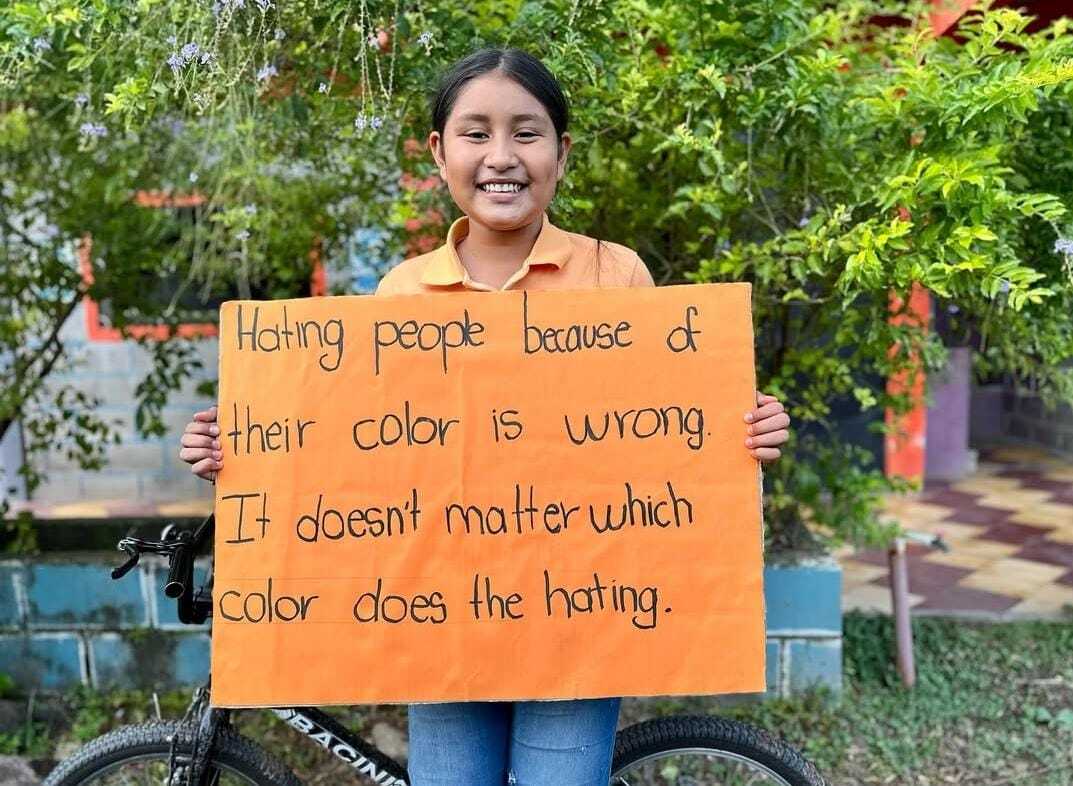 Hating people because of
their color is wrong.
It doesn't matter which
color does the hating.
BACINI